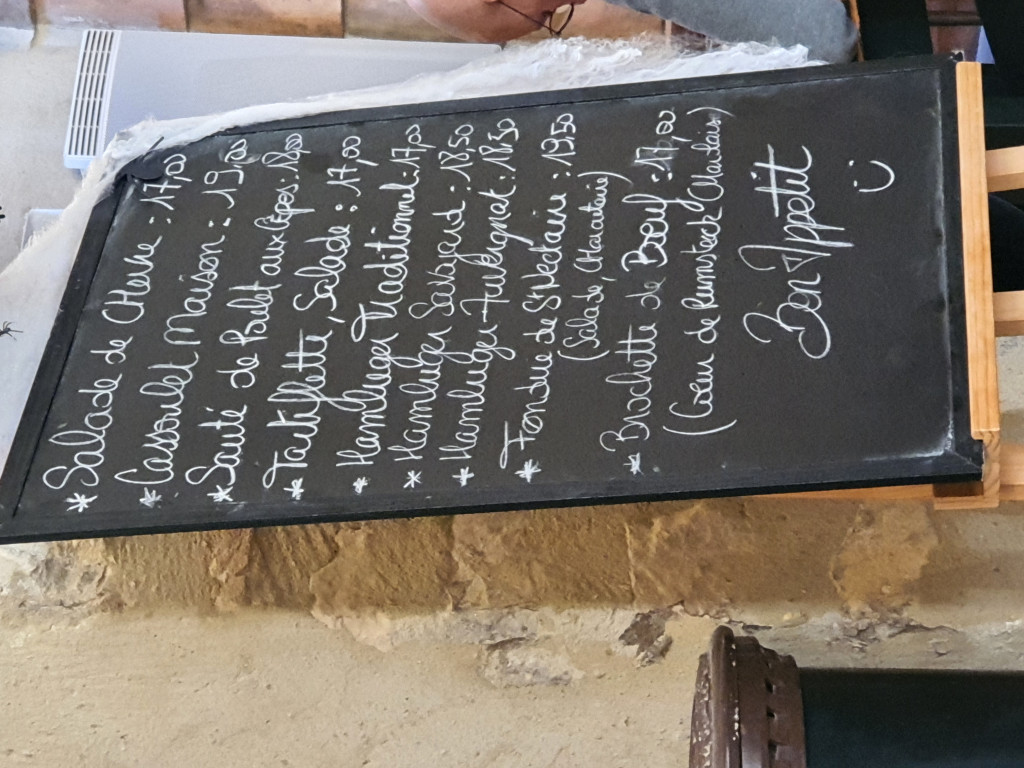 * Salade de Chèvre : 17,00
* Cassoulet Maison : 19,00
* Sauté de Poulet aux Cèpes : 18,00
* Tartiflette, Salade : 17,00
* Hamburger Traditionnel : 17,00
* Hamburger Savoyard : 18,50
* Hamburger Auvergnat : 18,50
* Fondue de St Nectaire : 19,50
(Salade, Charcuterie)
* Brochette de Boeuf : 17,00
(Coeur de Rumsteck Charolais)
Bon Appetit